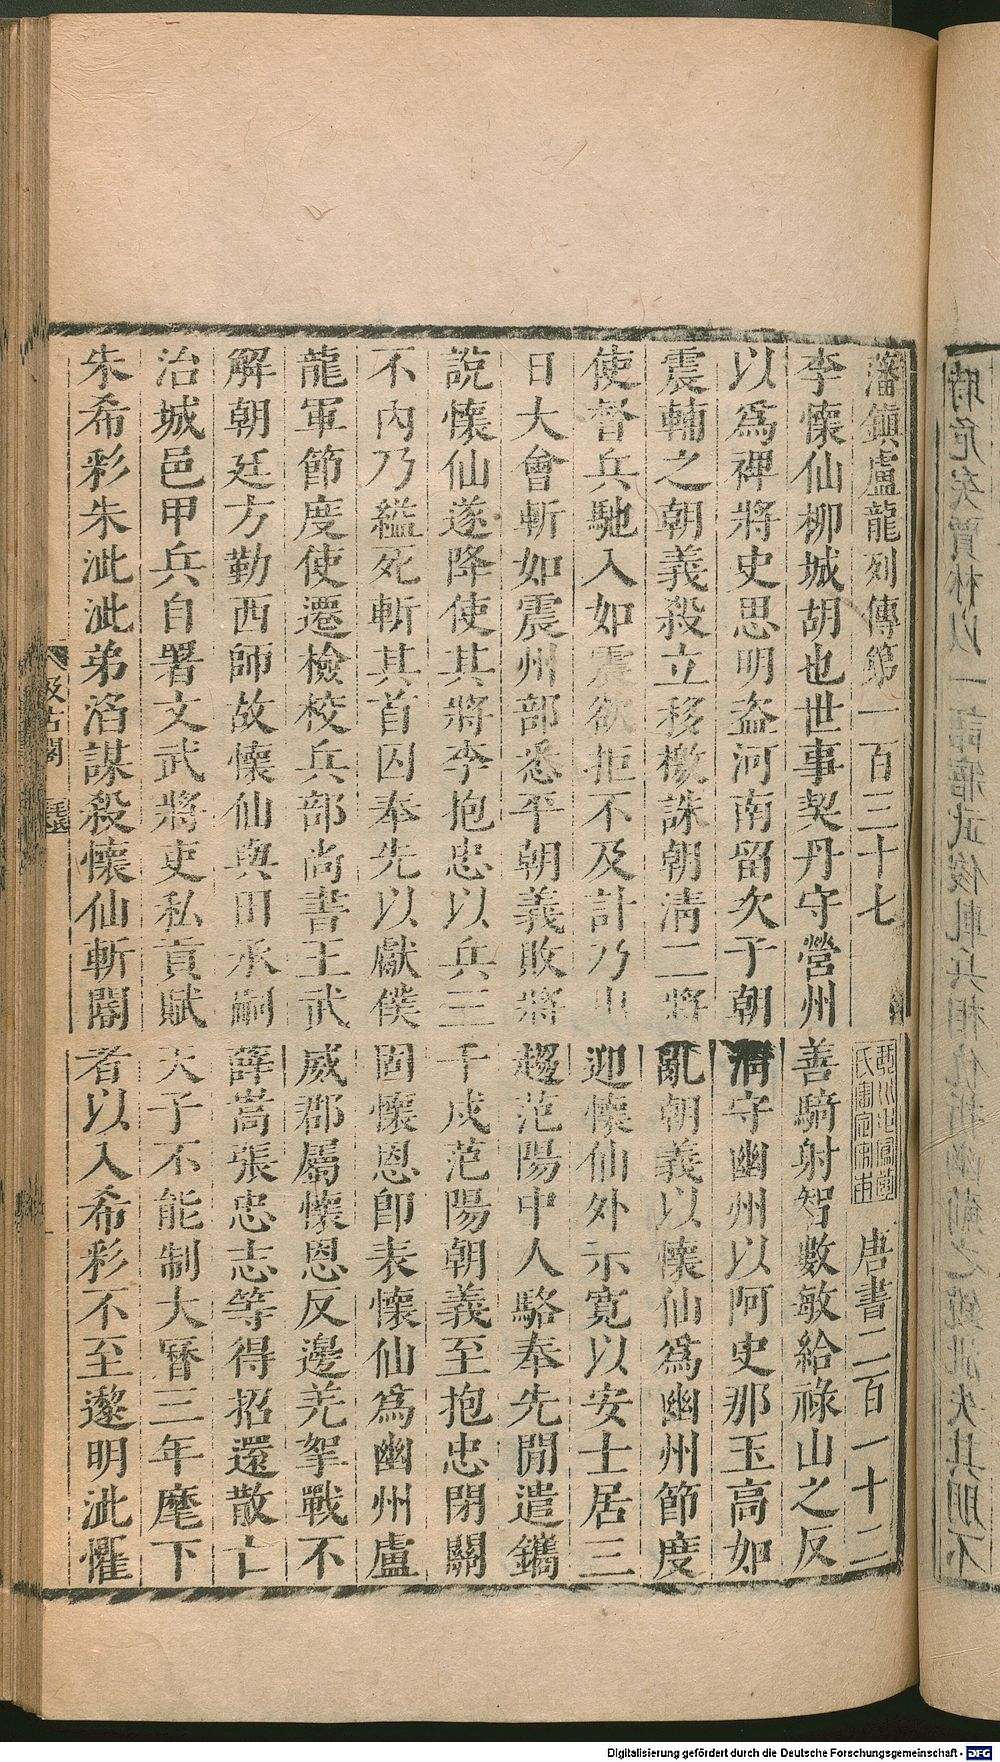 藩鎮盧龍列傳第一百三十七 唐書二百一十二
李懷仙柳城胡也世事契丹守營州善騎射智數敏給祿山之反
以爲裨將史思明盗河南留久于朝清守幽州以阿史那玉高如
震輔之朝義殺立移檄誅朝清二將亂朝義以懷仙爲幽州節度
使督兵馳入如震欲拒不及計乃出迎懷仙外示寛以安士居三
日大會斬如震州部悉平朝義敗將趨范陽中人駱奉先閒遣鐫
說懷仙遂降使其將李抱忠以兵三千戍范陽朝義至抱忠閉關
不內乃縊死斬其首因奉先以獻僕固懷恩卽表懷仙爲幽州盧
龍軍節度使遷檢校兵部尚書王武威郡屬懷恩反邊羌挐戰不
解朝廷方勤西師故懷仙與田承嗣薛嵩張忠志等得招還散亡
治城邑甲兵自署文武將吏私貢賦天子不能制大曆三年麾下
朱希彩朱泚泚弟滔謀殺懷仙斬閽者以入希彩不至遲明泚懼
汲古閣
Digitalisierung gefördert durch die Deutsche Forschungsgemeinschaft - DFG